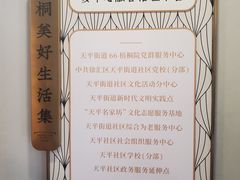 桐美好生活集
天平街道66梧桐院党群服务中心
中共徐汇区天平街道社区党校(分部)
天平街道社区文化活动分中心
天平街道新时代文明实践点
“天平名家坊”文化志愿服务基地
天平街道社区综合为老服务中心
天平社区社会组织服务中心
天平社区学校(分部)
天平社区政务服务延伸点